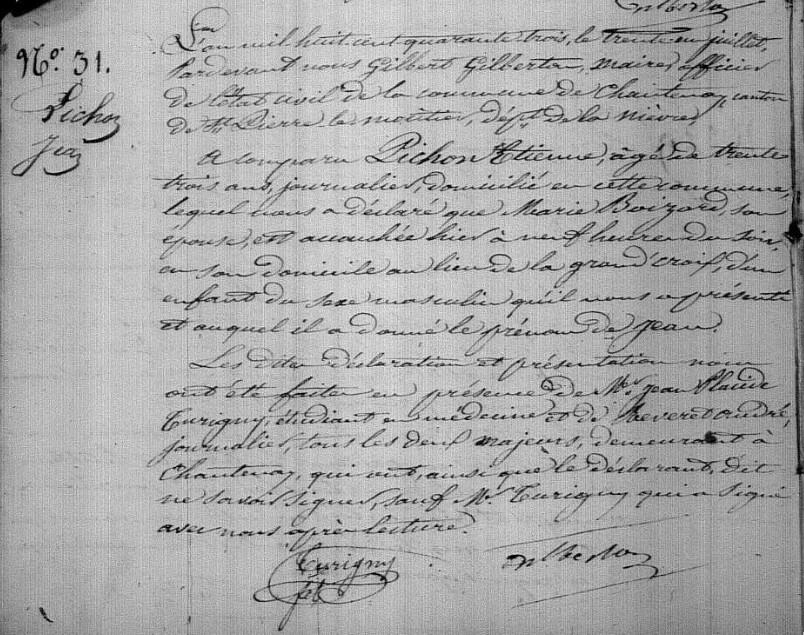 No. 31.
Pichon
Jean
L'an mil huit cent quarante trois, le trente un juillet,
Pardevant nous Gilbert Gilberton, maire, officier
de l'état civil de la commune de Chantenay, canton
de St Pierre-le-moûtier, dépt de la nièvre,
A comparu Pichon Etienne, âgé de trente
trois ans, journalier, domicilié en cette commune,
lequel nous a déclaré que Marie Boizard, son
épouse, est accouchée hier à neuf heures du soir,
en son domicile au lieu de la grand'croix, d'un
enfant du sexe masculin qu'il nous a présenté
et auquel il a donné le prénom de Jean.
Les dites déclaration et présentation nous
ont été faites en présence de Mr. Jean Placide
Turigny, étudiant en médecine et de Reveret andré,
journalier, tous les deux majeurs, demeurant à
Chantenay, qui ont, ainsi que le déclarant, dit
ne savoir signer, sauf Mr. Turigny qui a signé
avec nous après lecture.
Turigny
Gilberton